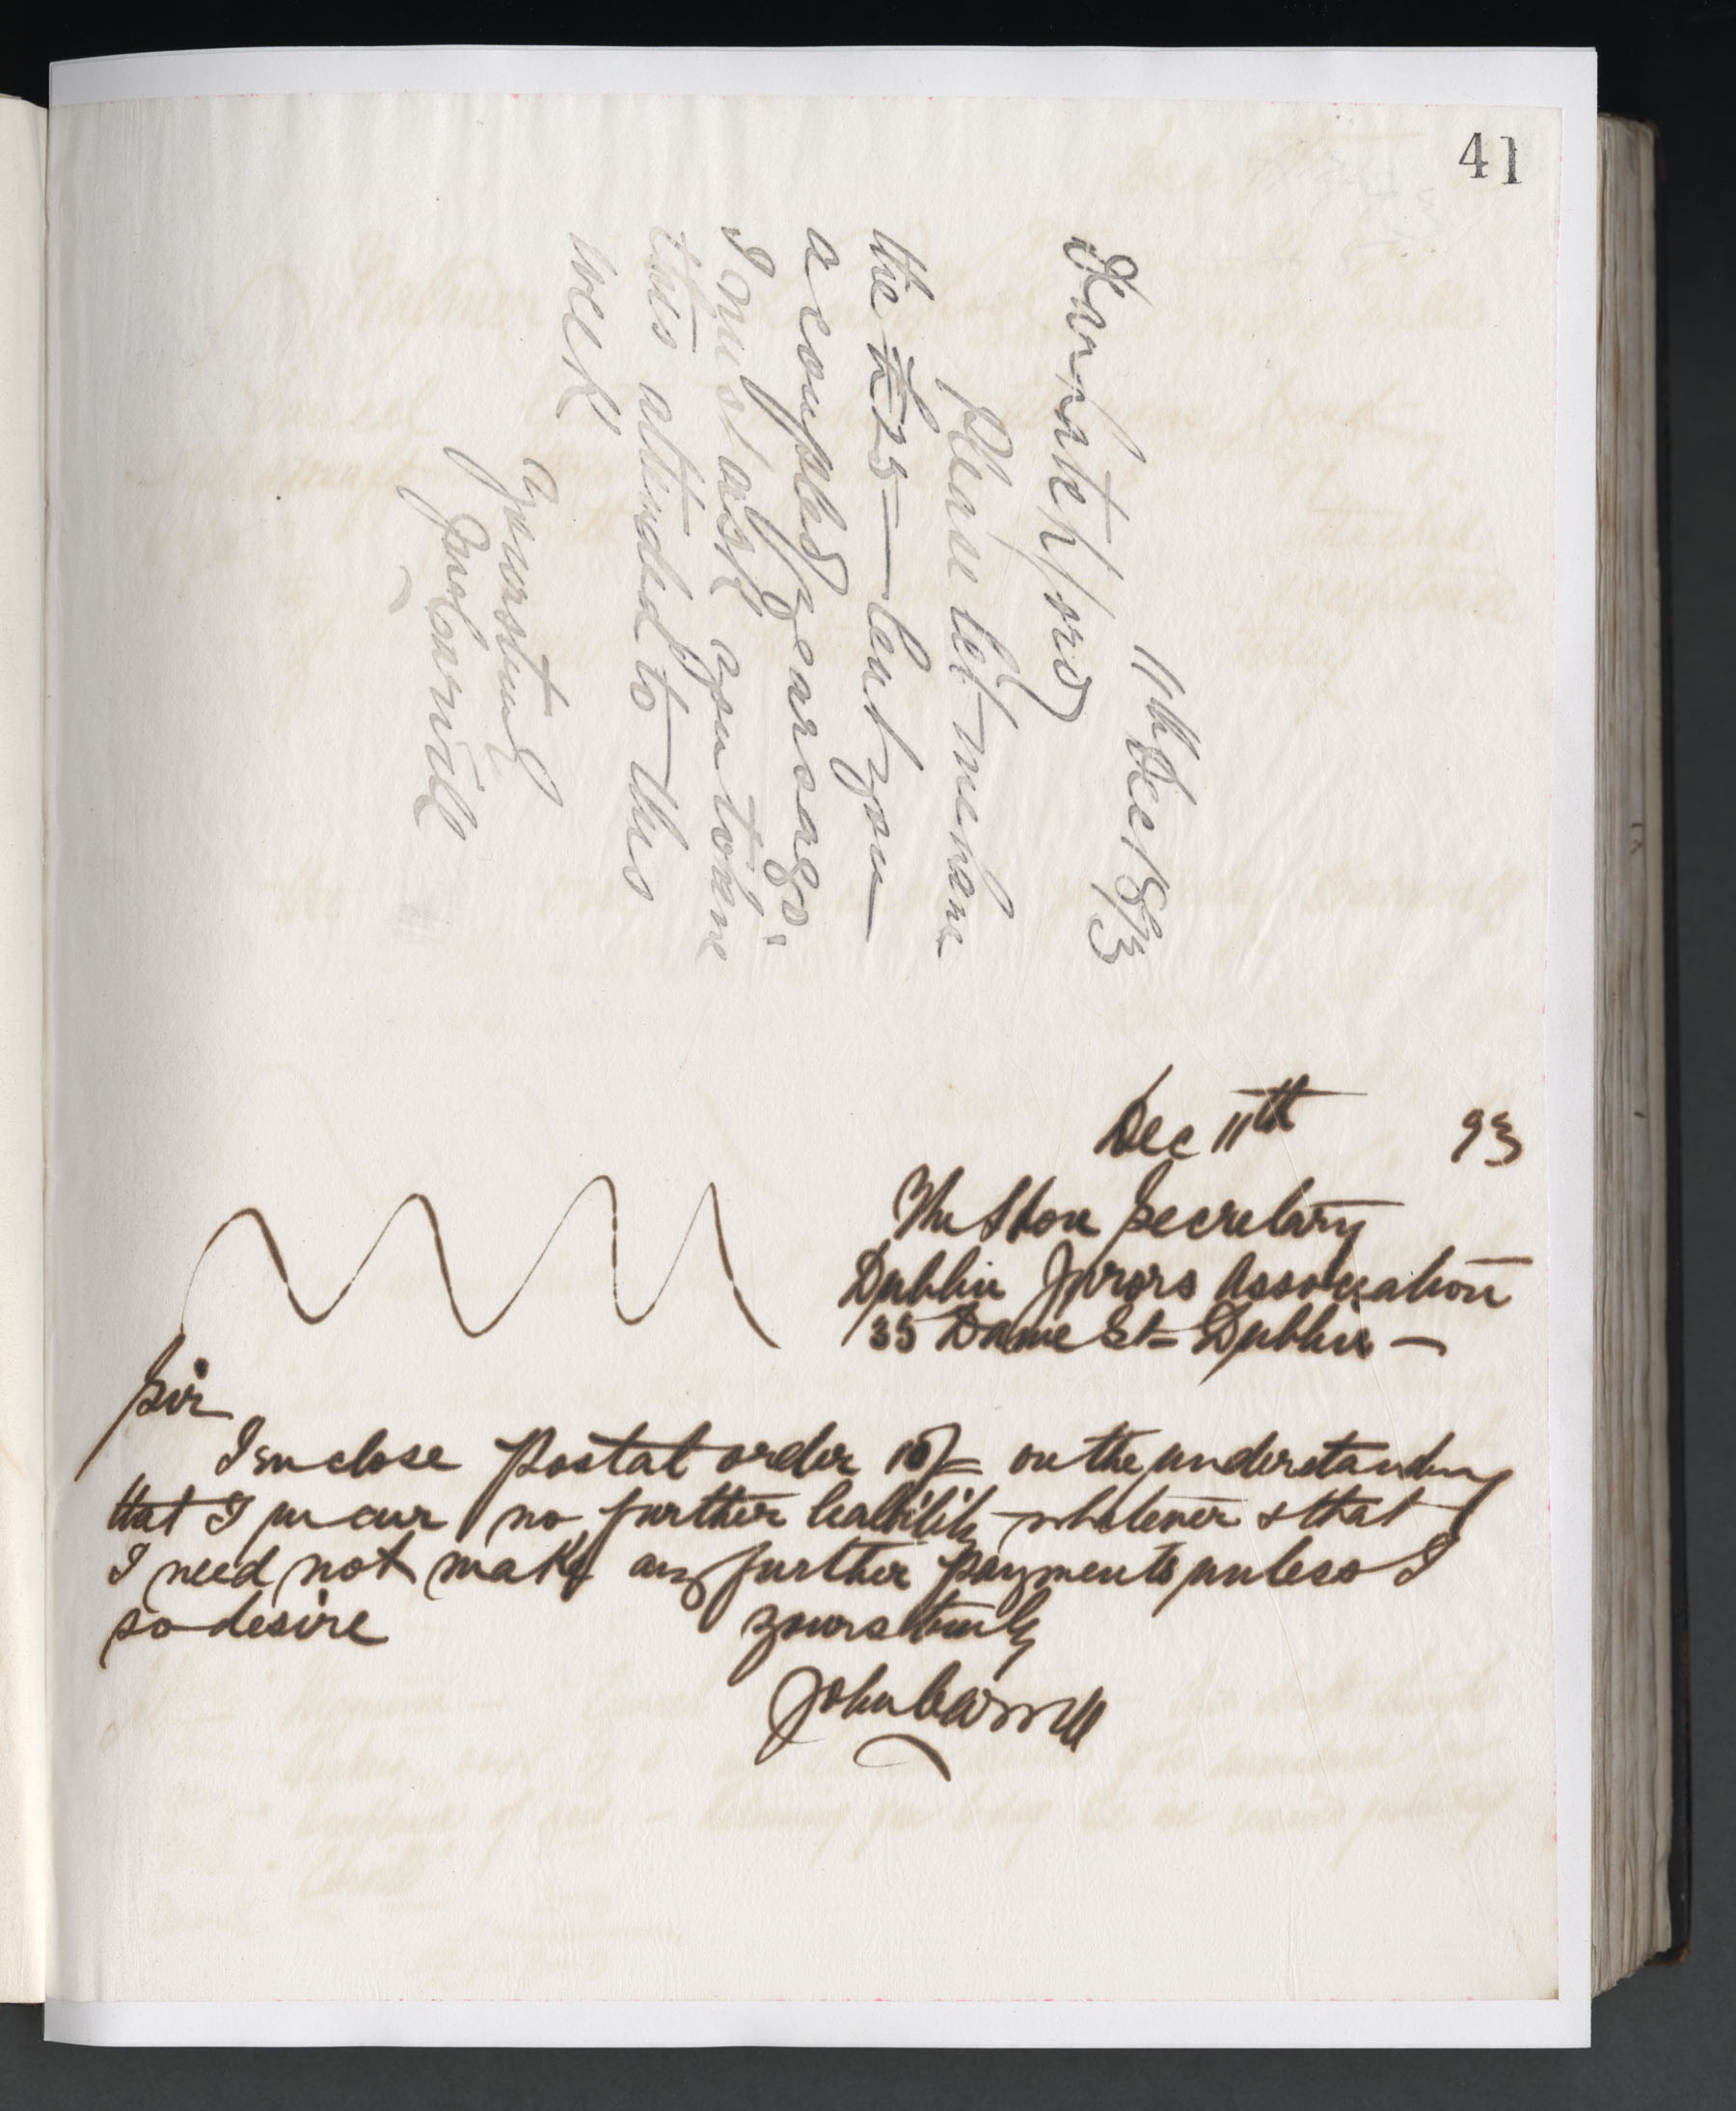 41
11th Dec 1893
Frank Wexford
Please let me have
the £25 — lent you
a couple of years ago.
I must ask you to have
this attended to this
week
Yours truly
Jno Carvill
Dec 11th 93
The Hon Secretary
Dublin Jurors Association
35 Dame St Dublin —
Sir
I enclose Postal order 10/- on the understanding
that I incur no further liability whatever & that
I need not make any further payments unless I
so desire yours truly
John Carvill